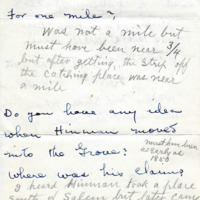 For one mile?
Was not a mile but
must have been near 3/4
but after getting, the strip off
the catching place was near
a mile
Do you have any idea
when Hinman moved
into the Grove?
must hav been
as early as
1850
Where was his claim?
I heard Hinman took a place
south of Salem but later came